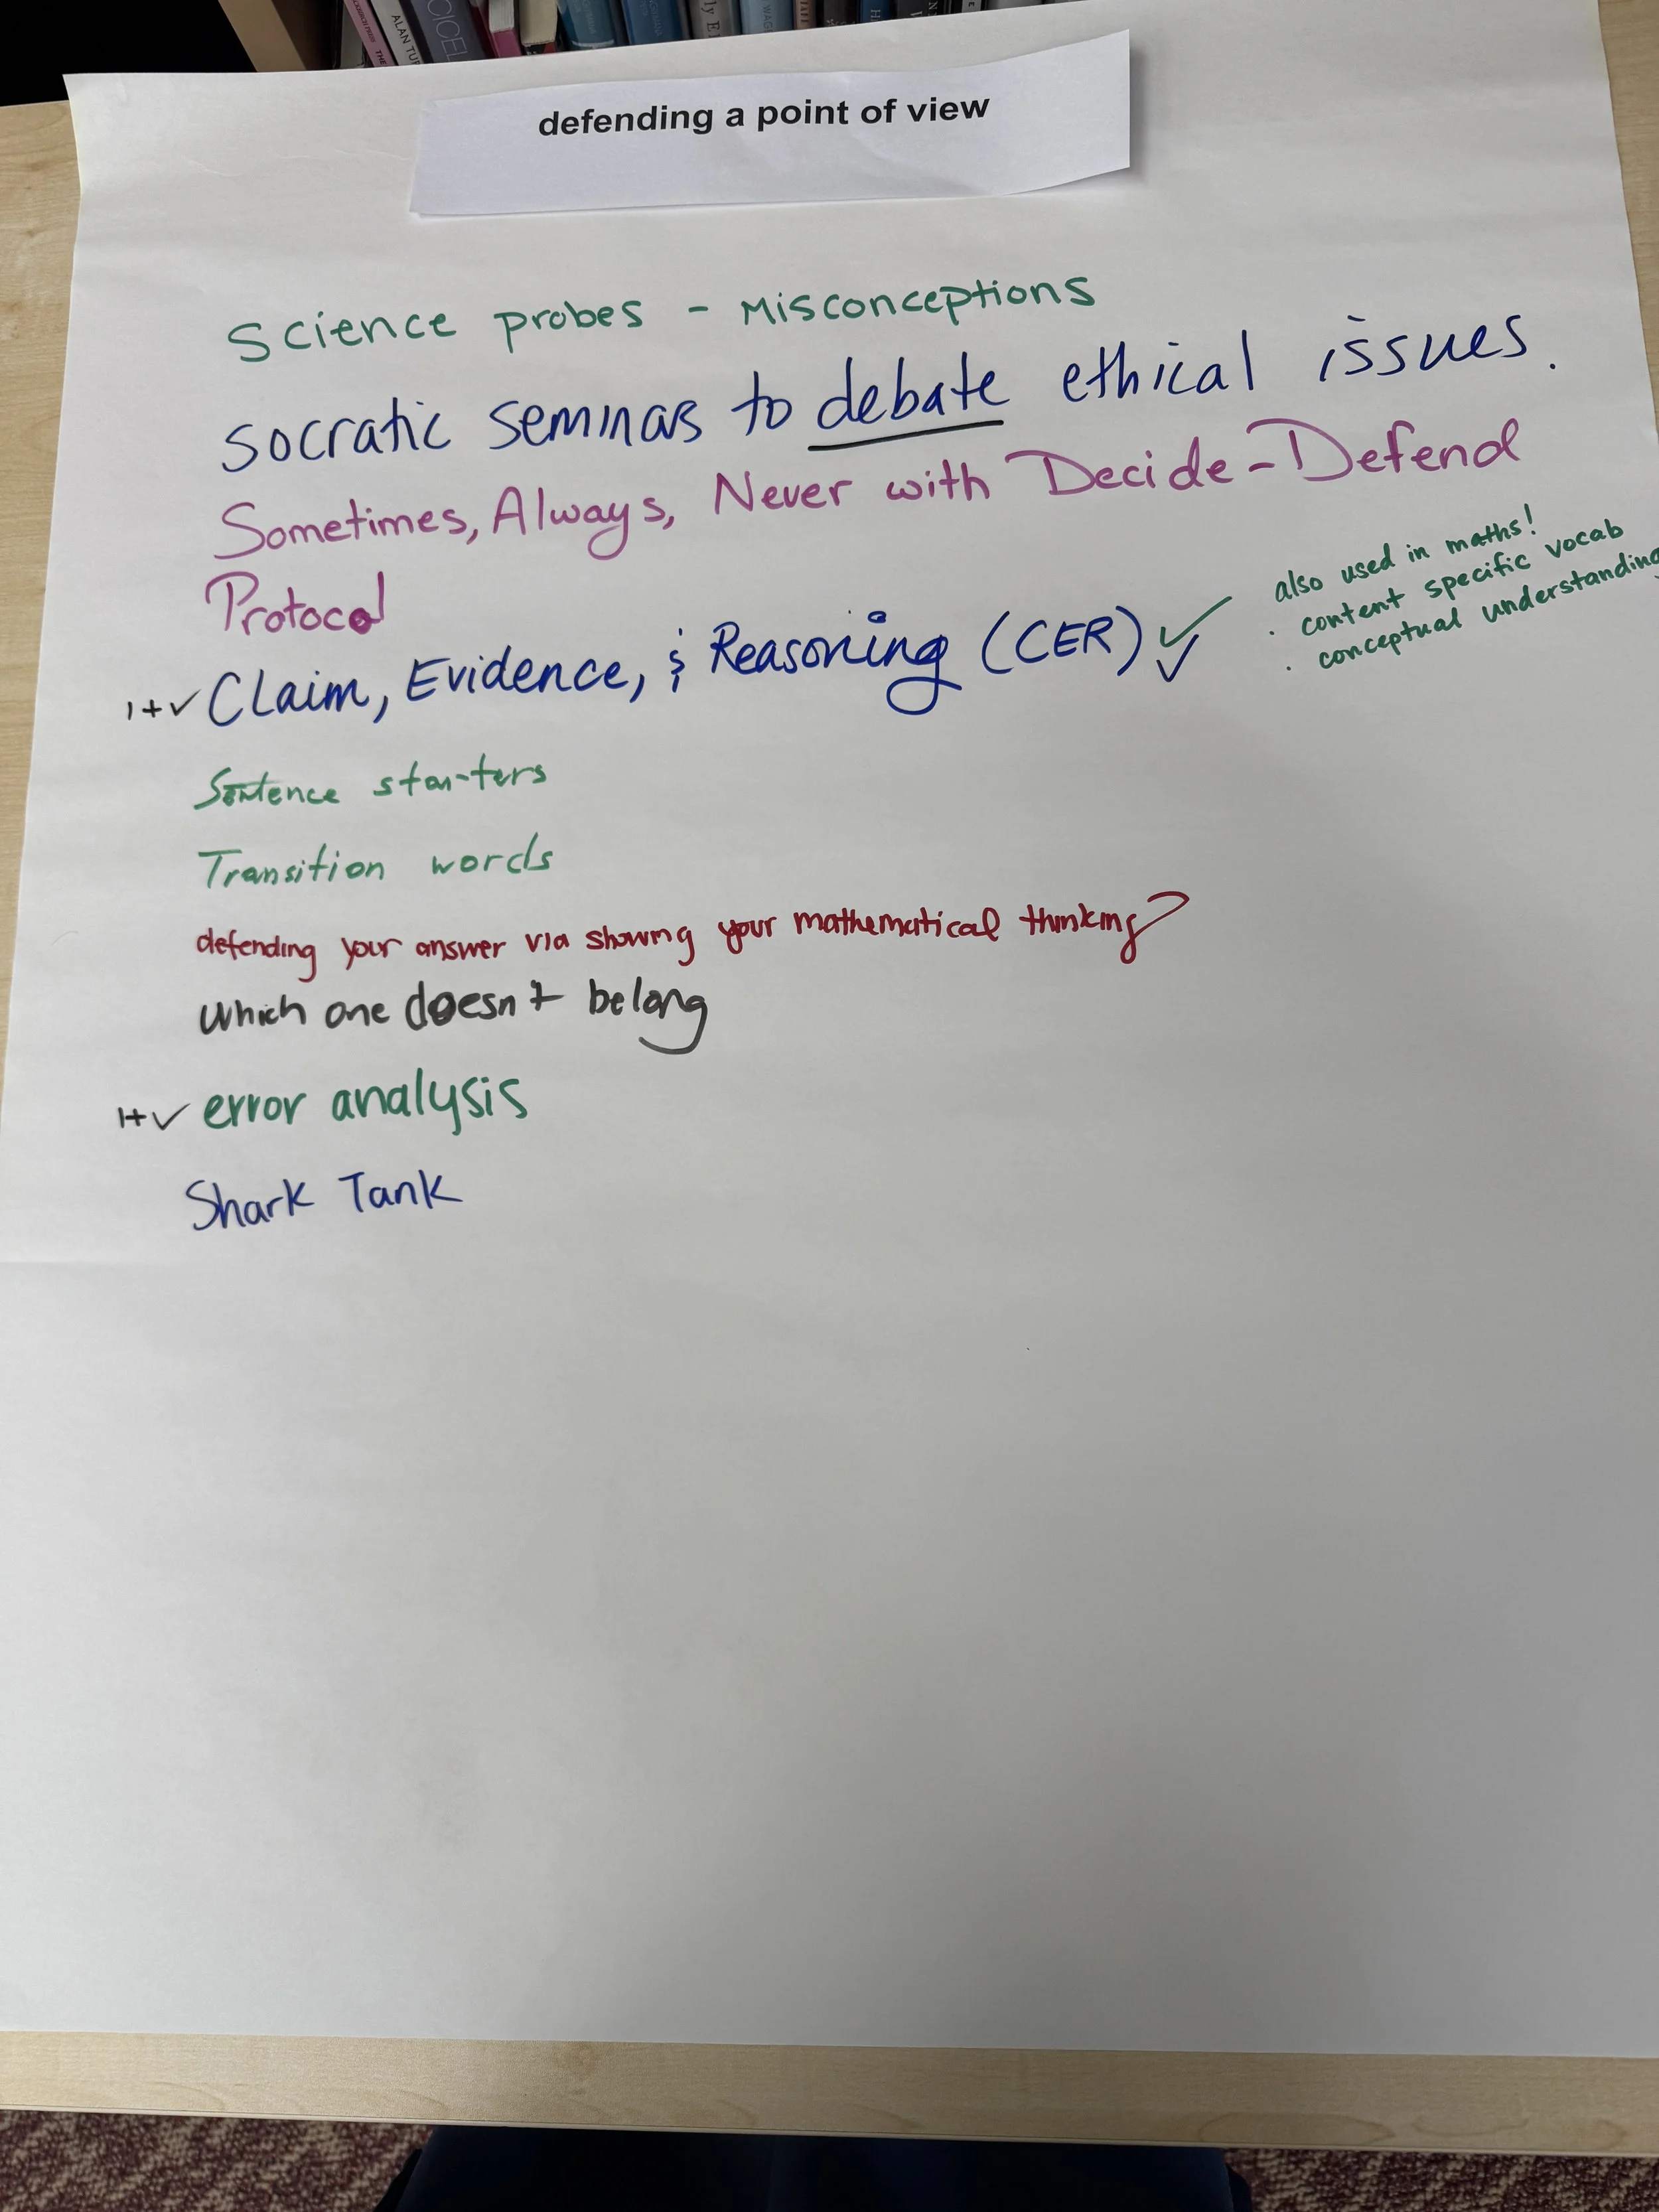 ALAN TUR
defending a point of view
Science probes - Misconceptions
Socratic seminars to debate ethical issues.
Sometimes, Always, Never with Decide-Defend
Protocol
also used in maths!
· content specific vocab
· conceptual understanding
1+✓ Claim, Evidence, & Reasoning (CER) ✓✓
Sentence starters
Transition words
defending your answer via showing your mathematical thinking?
which one doesn't belong
1+✓ error analysis
Shark Tank